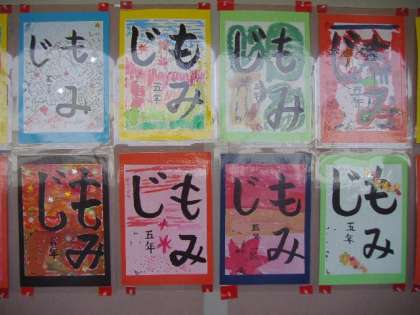 もみじ
五年
もみじ
五年
もみじ
五年
もみじ
五年
もみじ
五年
もみじ
五年
もみじ
五年
もみじ
五年